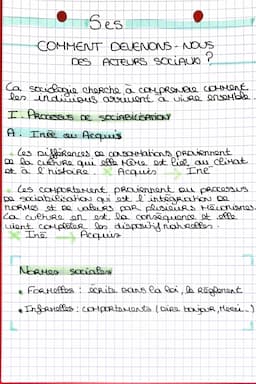 Ses
COMMENT DEVENONS-NOUS
DES ACTEURS SOCIAUX ?
La sociologie cherche à comprendre comment
les individus arrivent à vivre ensemble
I. Processus de sociabilisation
A. Inné ou Acquis
• Les différences de consommations proviennent
de la culture qui elle même est lié au climat
et à l'histoire. × Acquis → Iné
• Les comportement proviennent du processus
de sociabilisation qui est l'intégration de
normes et de valeurs par plusieurs mécanismes.
La culture en est la conséquence et elle
vient compléter les dispositif naturelles.
× Iné → Acquis
Normes sociales
• Formelles : écrite dans la loi, le règlement
• Informelles : comportements (dire bonjour, merci...)